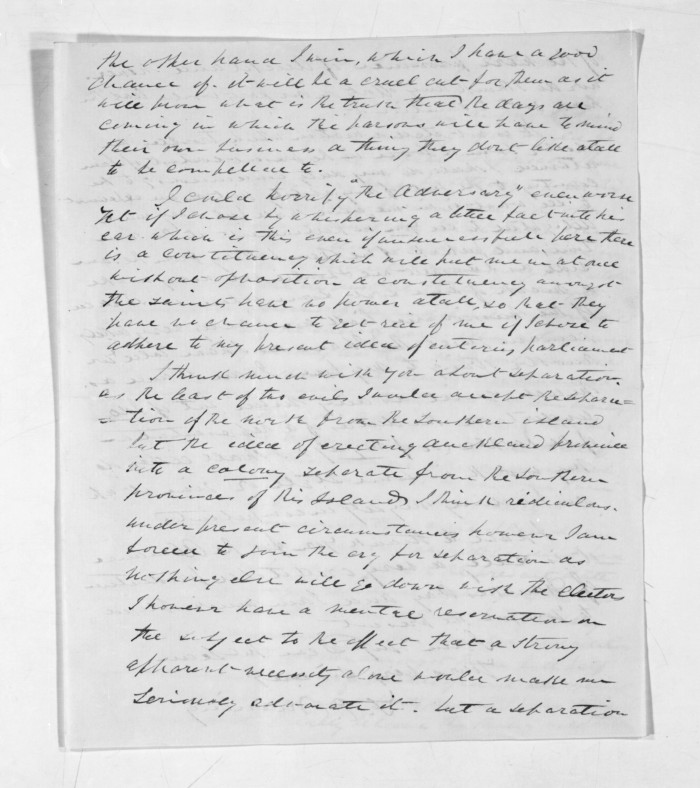 the other hand I win, which I have a good
chance of. it will be a cruel cut for them as it
will prove what is the truth that the days are
coming in which the parsons will have to mind
their own business a thing they dont like atall
to be compelled to.
I could horrify "the Adversary" even worse
yet if I chose by whispering a little fact into his
ear. which is this even if unsuccessful here there
is a constituency which will put me in at once
without opposition a constituency amongst
the saints have no power atall, so that they
have no chance to get rid of me if I chose to
adhere to my present idea of entering parliament
I think much with you about separation.
as the least of two evils I would accept the separa=
=tion of the north from the Southern island
but the idea of erecting Auckland province
into a colony separate from the Southern
provinces of this Island I think ridiculous.
under present circumstances however I am
forced to join the cry for separation as
nothing else will go down with the electors
I however have a mental reservation on
the subject to the effect that a strong
apparent necessity alone would make me
seriously advocate it. but a separation